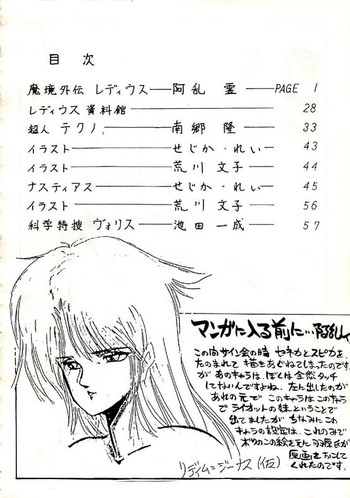 目次
魔境外伝 レディウス——阿乱 霊——PAGE 1
レディウス 資料館——28
超人 テクノ——南郷 隆——33
イラスト——せじか・れい——43
イラスト——荒川 文子——44
ナスティアス——せじか・れい——45
イラスト——荒川 文子——56
科学特捜 ヴォリス——池田 一成——57
マンガに入る前に…阿乱
この間サイン会の時 セネカとスピカを、
たのまれて 描きあぐねてしまったのです
が あのキャラは、ぼくは全然タッチ
してないんですよね、左に出したのが
あれの元で このキャラはこのキャラ
で ライオットの妹、ということで
出てましたが ちなみに この
キャラの設定は、これのみで
ボクのこの絵を元に 氏が
原画をおこして
くれたのです。
リディム=ジーナス(仮)